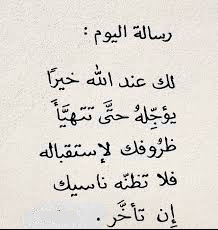 رسالة اليوم :
لك عند الله خيرًا
يؤجِّلهُ حتَّى تتهيَّأ
ظرُوفك لإستقباله
فلا تظنّه ناسيك
إن تأخَّر .